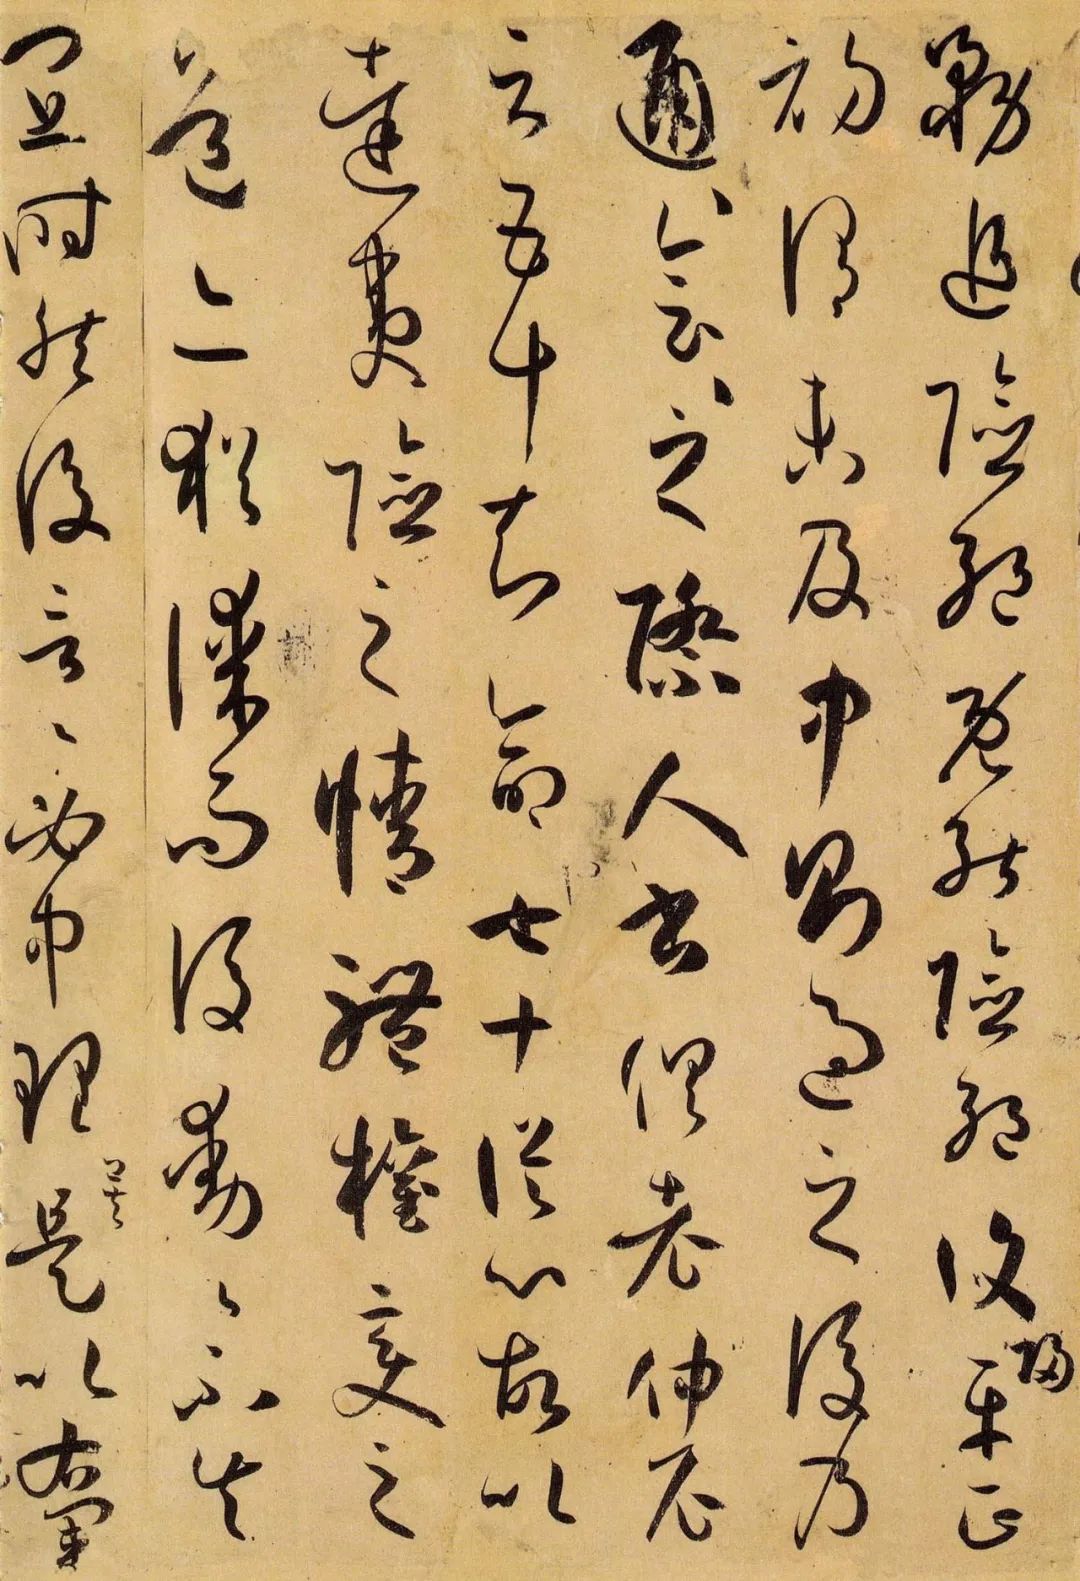 務追險絕既能險絕復歸平正
初謂未及中則過之後乃
通〻會〻之際人書俱老仲尼
云五十知命七十從心故以
達夷險之情體權變之
道亦猶謀而後動〻不失
宜時然後言〻必中理矣是以右軍